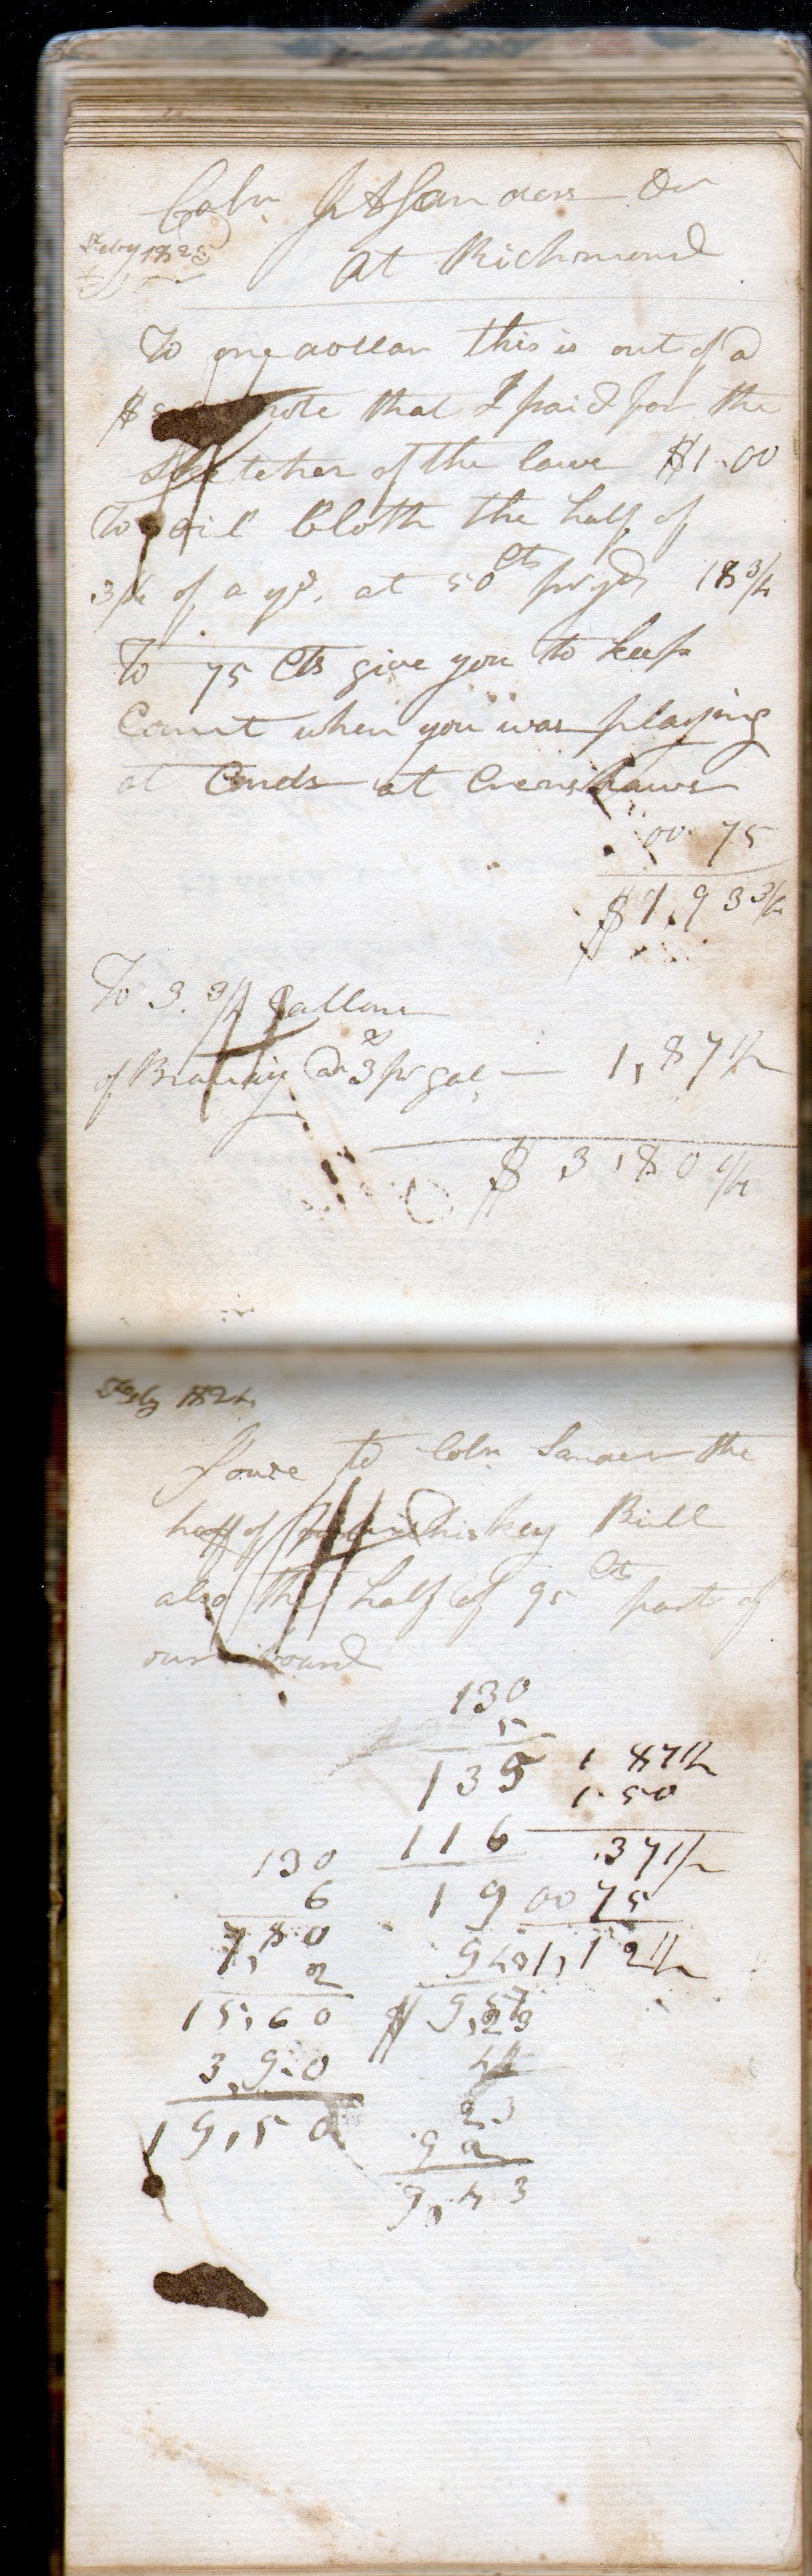 Coln Sanders Dr
Feby 1825
at Richmond
To one dollar this is out of a
$ note that I paid for the
Sketches of the laws $1.00
To oil Cloth the half of
3/4 of a yd. at 50 Cts pr yd 18 3/4
To 75 Cts give you to keep
Count when you was playing
at Cards at Crenshaws
00 75
$1,93 3/4
To 3. 3/4 gallons
of Brandy at 3 pr gal, 1,87 1/2
$ 3,80 1/4
Feby 1824
I owe to Coln Sanders the
half of Whiskey Bill
also the half of 95 Ct part of
our board
130
5
135 1 87 1/2
1.50
116 .37 1/2
130
6 19 00 75
7,80 1,12 1/2
2
15,60
3,90
19,50
9,43